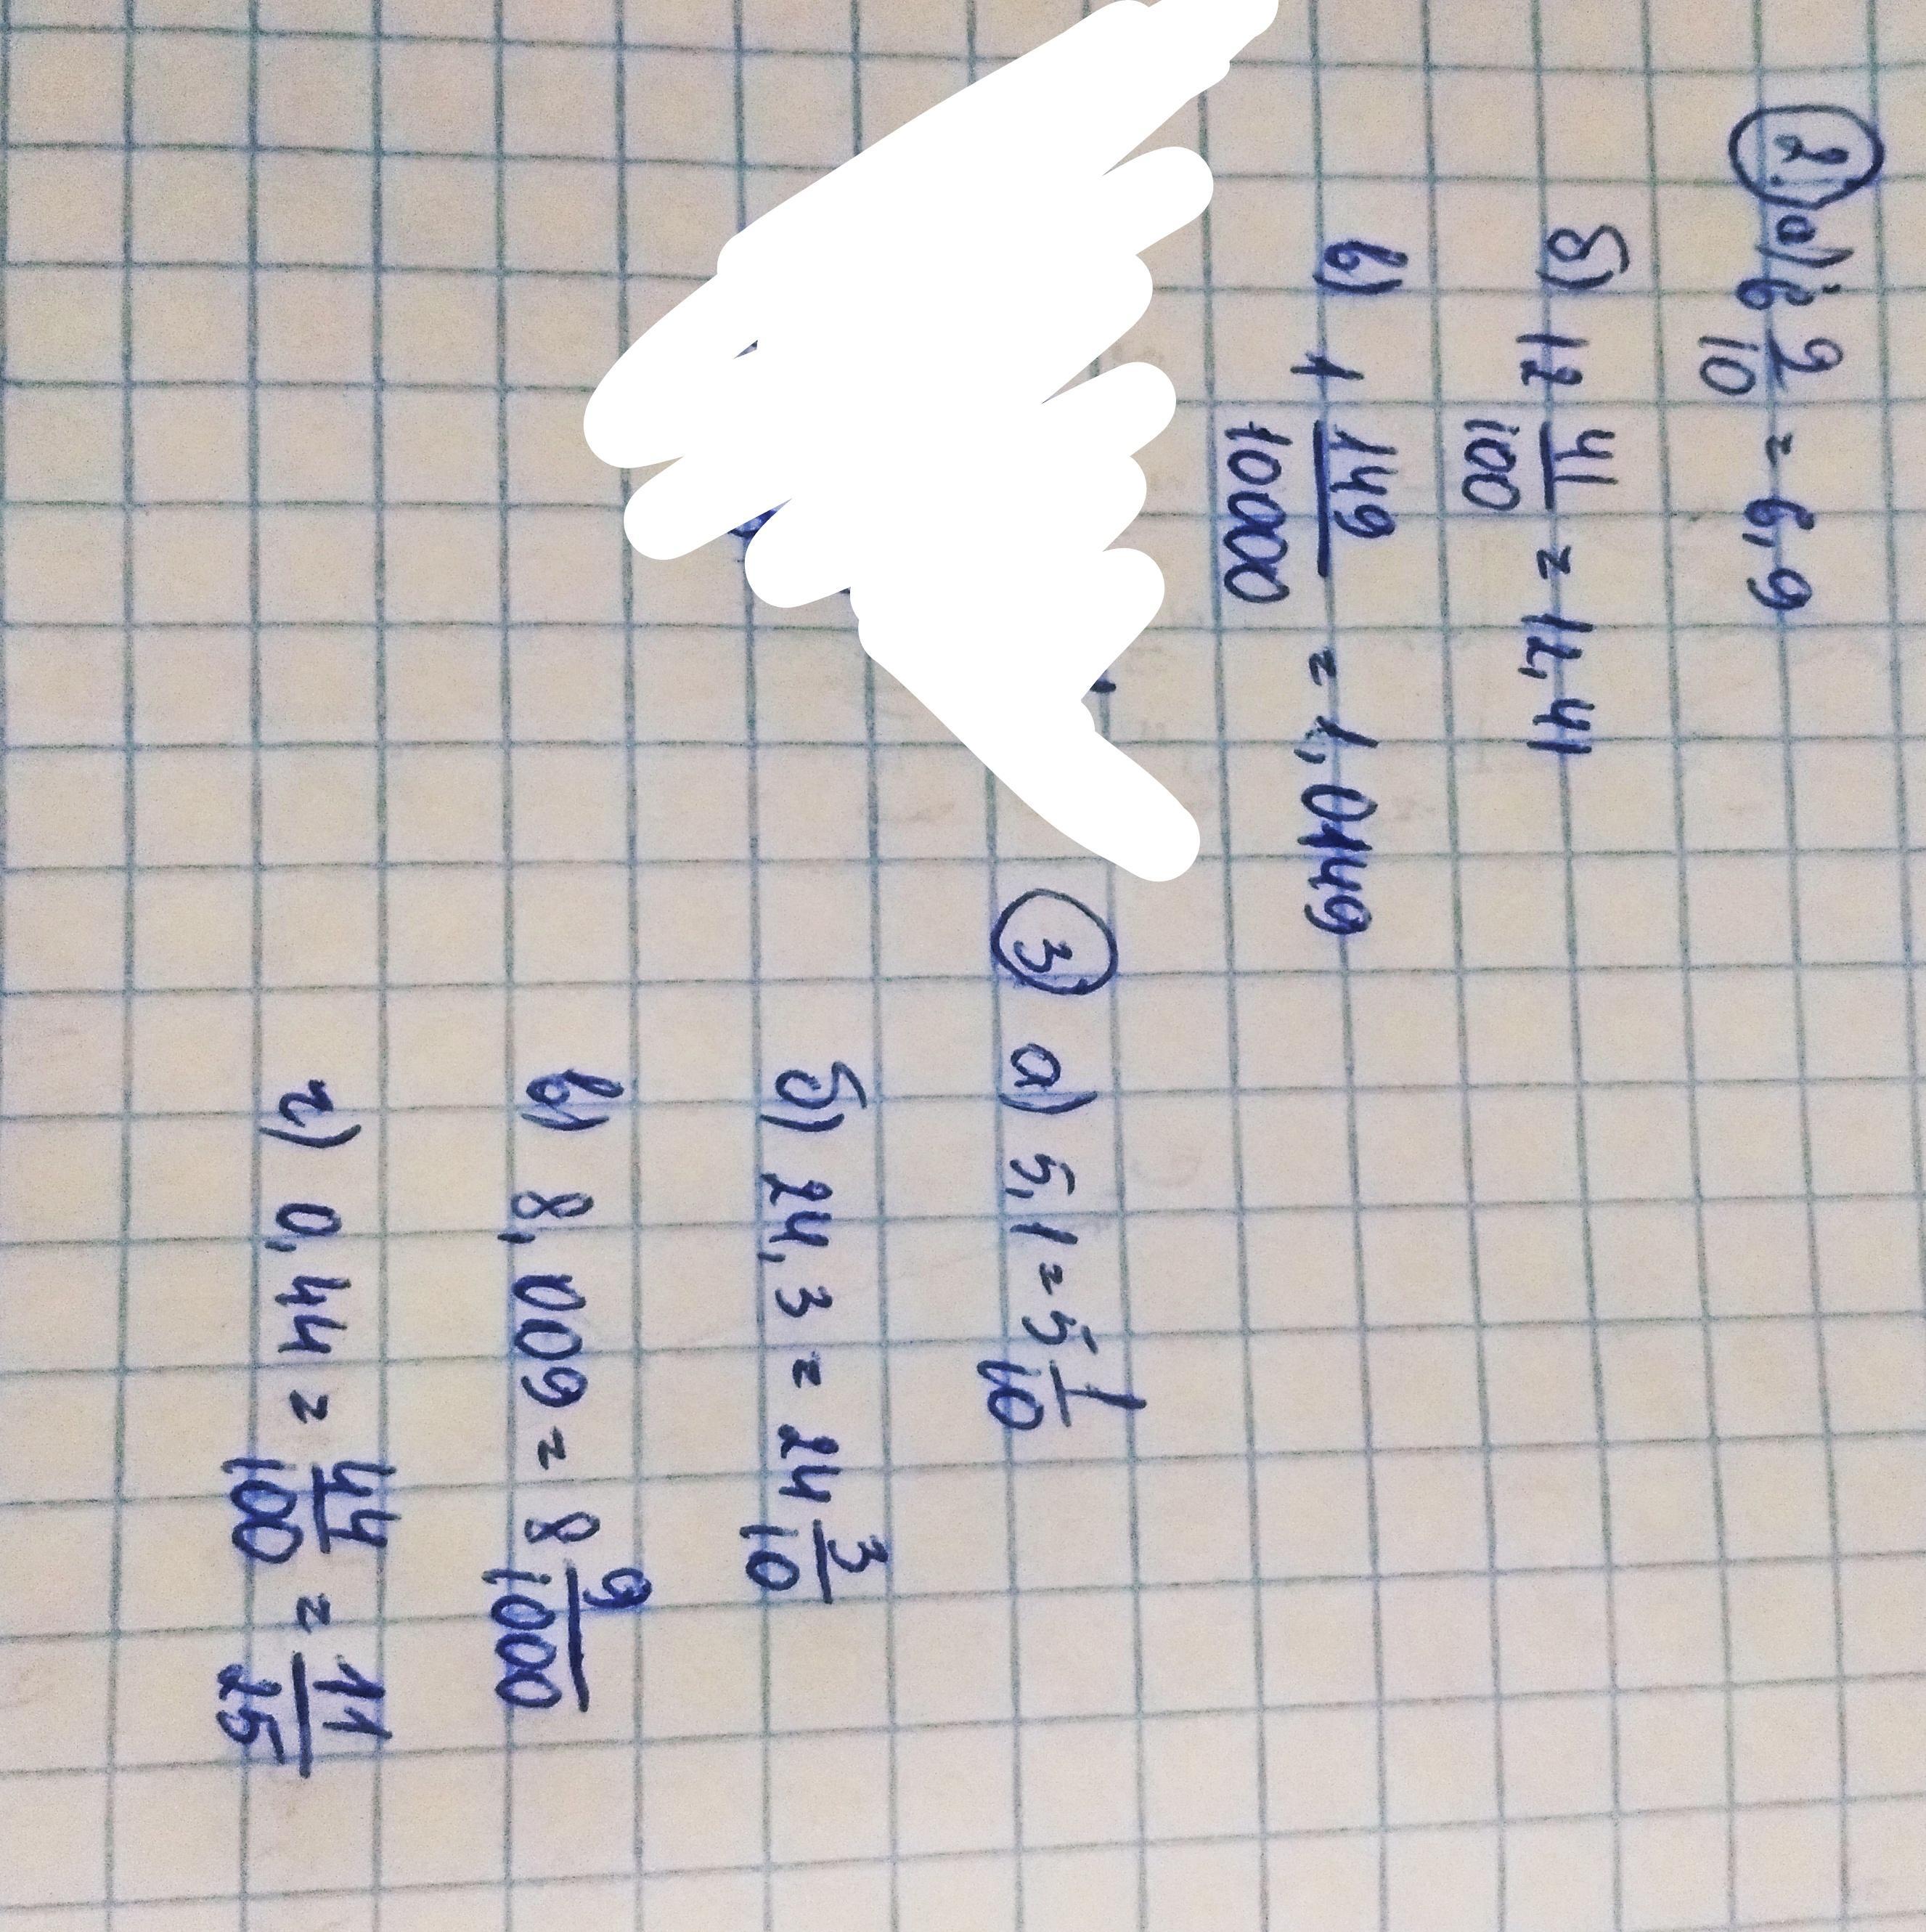 2. а) 6 9/10 = 6,9
б) 12 41/100 = 12,41
в) 1 149/10000 = 1,0149
3 а) 5,1 = 5 1/10
б) 24,3 = 24 3/10
в) 8,009 = 8 9/1000
г) 0,44 = 44/100 = 11/25